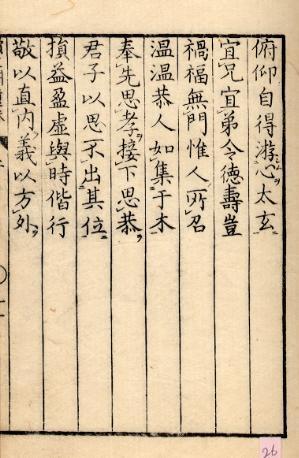 俯仰自得游心太玄
宜兄宜弟令德壽豈
禍福無門惟人所召
温温恭人如集于木
奉先思孝接下思恭
君子以思不出其位
損益盈虛與時偕行
敬以直內義以方外
26